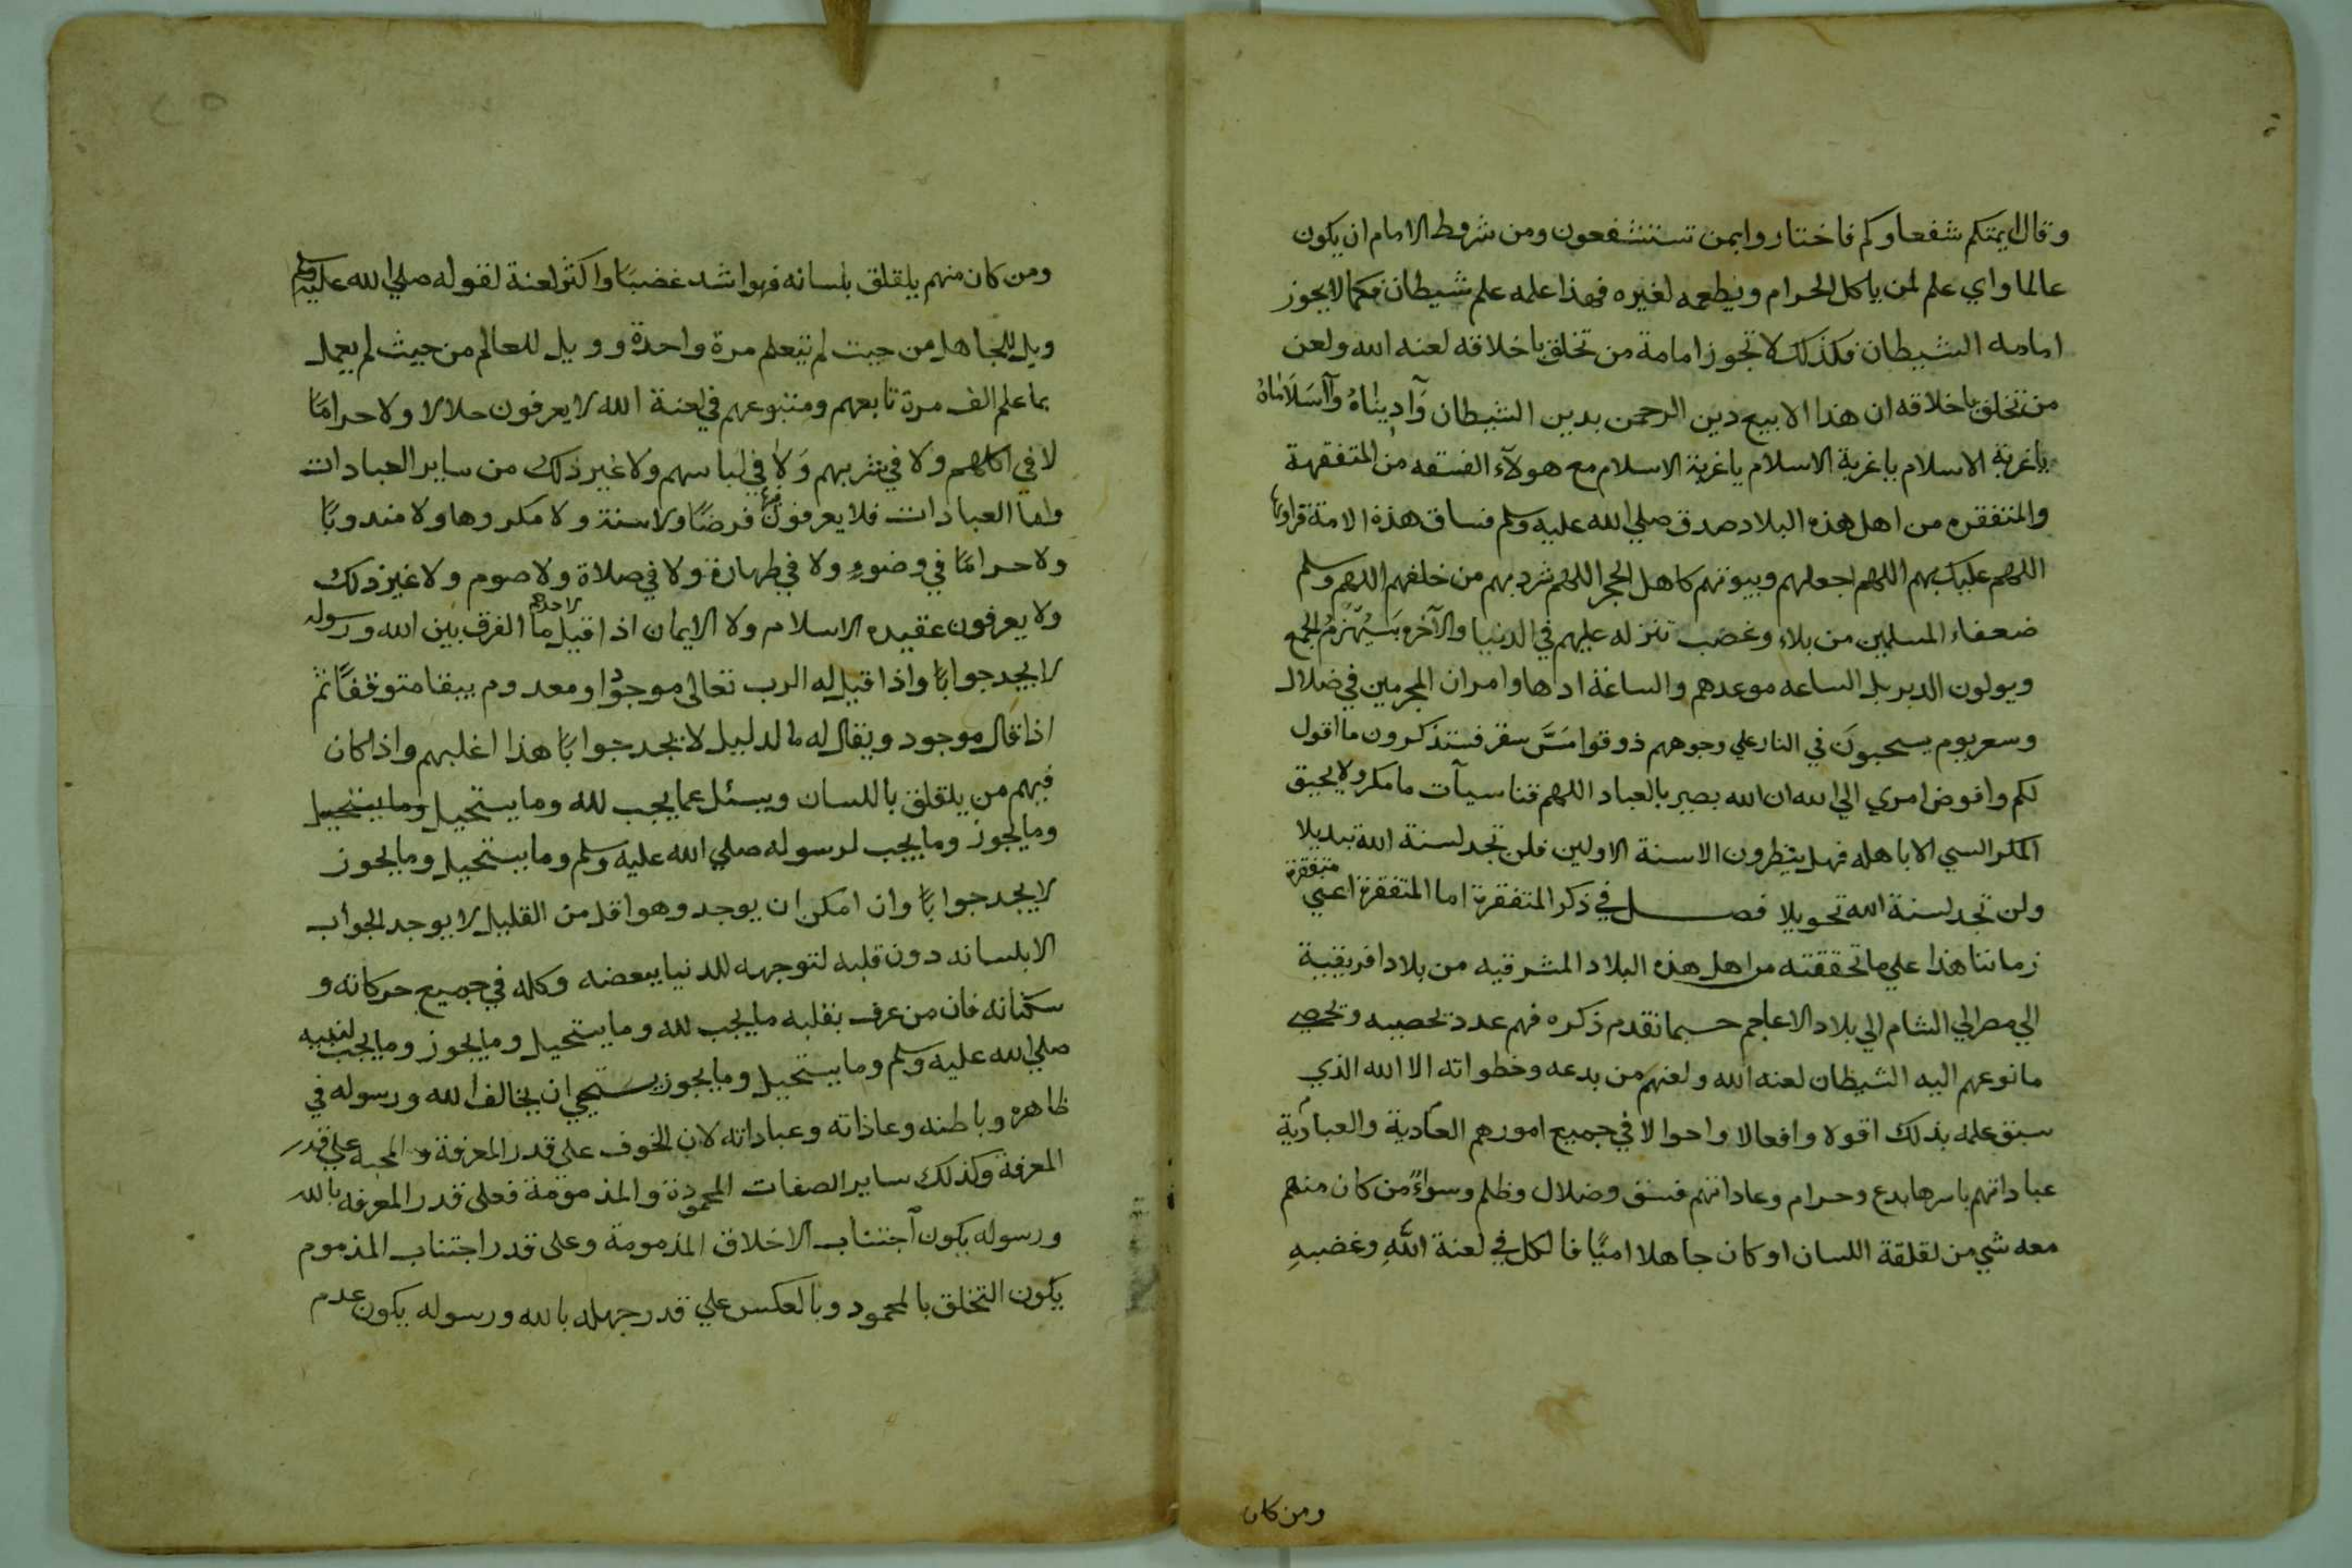 وقال ايمتكم شفعاوكم فاختاروا بمن تستشفعون ومن شروط الامام ان يكون
عالما واي علم لمن ياكل الحرام ويطعمه لغيره فهذا علمه علم شيطان فكما لا يجوز
امامه الشيطان فكذلك لا تجوز امامة من تخلق باخلاقه لعنه الله ولعن
من تخلق باخلاقه ان هذا الا بيع دين الرحمن بدين الشيطان وَآدِينَاهُ وَآاسَلَامَاهُ
ياغربة الاسلام ياغربة الاسلام ياغربة الاسلام مع هولآء الفسقه من المتفقهة
والمتفقره من اهل هذه البلاد صدق صلي الله عليه وسلم فساق هذة الامة قراوها
اللهم عليك بهم اللهم اجعلهم وبيوتهم كاهل الحجر اللهم شرد بهم من خلفهم اللهم وسلم
ضعفاء المسلمين من بلاء وغضب تنزله عليهم في الدنيا والآخره سَيُهْزَمُ الجمع
ويولون الدبر بل الساعه موعدهم والساعة ادها وامر ان المجرمين في ضلال
وسعر يوم يسحبونَ في النار علي وجوههم ذوقوا مَسَّ سقر فستذكرون ما اقول
لكم وافوض امري الي الله ان الله بصير بالعباد اللهم قنا سيآت ما مكر ولا يحيق
المكر السي الا باهله فهل ينظرون الا سنة الاولين فلن تجد لسنة الله تبديلا
ولن تجد لسنة الله تحويلا فصــل في ذكر المتفقرة اما المتفقرة اعني متفقرة
زماننا هذا علي ما تحققته من اهل هذه البلاد المشرقيه من بلاد افريقية
الي مصر الي الشام الي بلاد الاعاجم حسبما تقدم ذكره فهم عدد تحصيه وتحصي
ما نوعهم اليه الشيطان لعنه الله ولعنهم من بدعه وخطواته الا الله الذي
سبق علمه بذلك اقولا وافعالا واحوالا في جميع امورهم العادية والعبادية
عباداتهم باسرها بدع وحرام وعاداتهم فسق وضلال وظلم وسواءً من كان منهم
معه شي من لقلقة اللسان او كان جاهلا اميًا فالكل في لعنة اللهِ وغضبهِ
ومن كان
ومن كان منهم يلقلق بلسانه فهو اشد غضبًا واكثر لعنة لقوله صلي الله عليه وسلم
ويل للجاهل من حيت لم يتعلم مرة واحدة وويل للعالم من حيث لم يعمل
بما علم الف مرة تابعهم ومتبوعهم في لعنة الله لا يعرفون حلالا ولا حرامًا
لا في اكلهم ولا في شربهم وَلا في لباسهم ولا غير ذلك من ساير العبادات
واما العبادات فلا يعرفون فيها فرضًا ولا سنة ولا مكروها ولا مندوبًا
ولا حرامًا في وضوءٍ ولا في طهارة ولا في صلاة ولا صوم ولا غير ذلك
ولا يعرفون عقيده الاسلام ولا الايمان اذا قيل لاحدهم ما الفرق بين الله ورسوله
لا يجد جوابًا واذا قيل له الرب تعالى موجودًا او معدوم يبقا متوقفًا ثم
اذا قال موجود ويقال له ما لدليل لا يجد جوابًا هذا اغلبهم واذا كان
فيهم من يلقلق باللسان ويسئل عما يجب لله وما يستحيل وما يستحيل
وما يجوز وما يجب لرسوله صلي الله عليه وسلم وما يستحيل وما يجوز
لا يجد جوابًا وان امكن ان يوجد وهو اقل من القليل لا يوجد الجواب
الا بلسانه دون قلبه لتوجهه للدنيا ببعضه وكله في جميع حركاته و
سكناته فان من عرف بقلبه ما يجب لله وما يستحيل وما يجوز وما يجب لنبيه
صلي الله عليه وسلم وما يستحيل وما يجوز يستحيي ان يخالف الله ورسوله في
ظاهره وباطنه وعاداته وعباداته لان الخوف على قدر المعرفة والمحبه علي قدر
المعرفة وكذلك ساير الصفات المحمودة والمذمومة فعلى قدر المعرفه بالله
ورسوله يكون اجتناب الاخلاق المذمومة وعلى قدر اجتناب المذموم
يكون التخلق بالمحمود وبالعكس علي قدر جهله بالله ورسوله يكون عدم